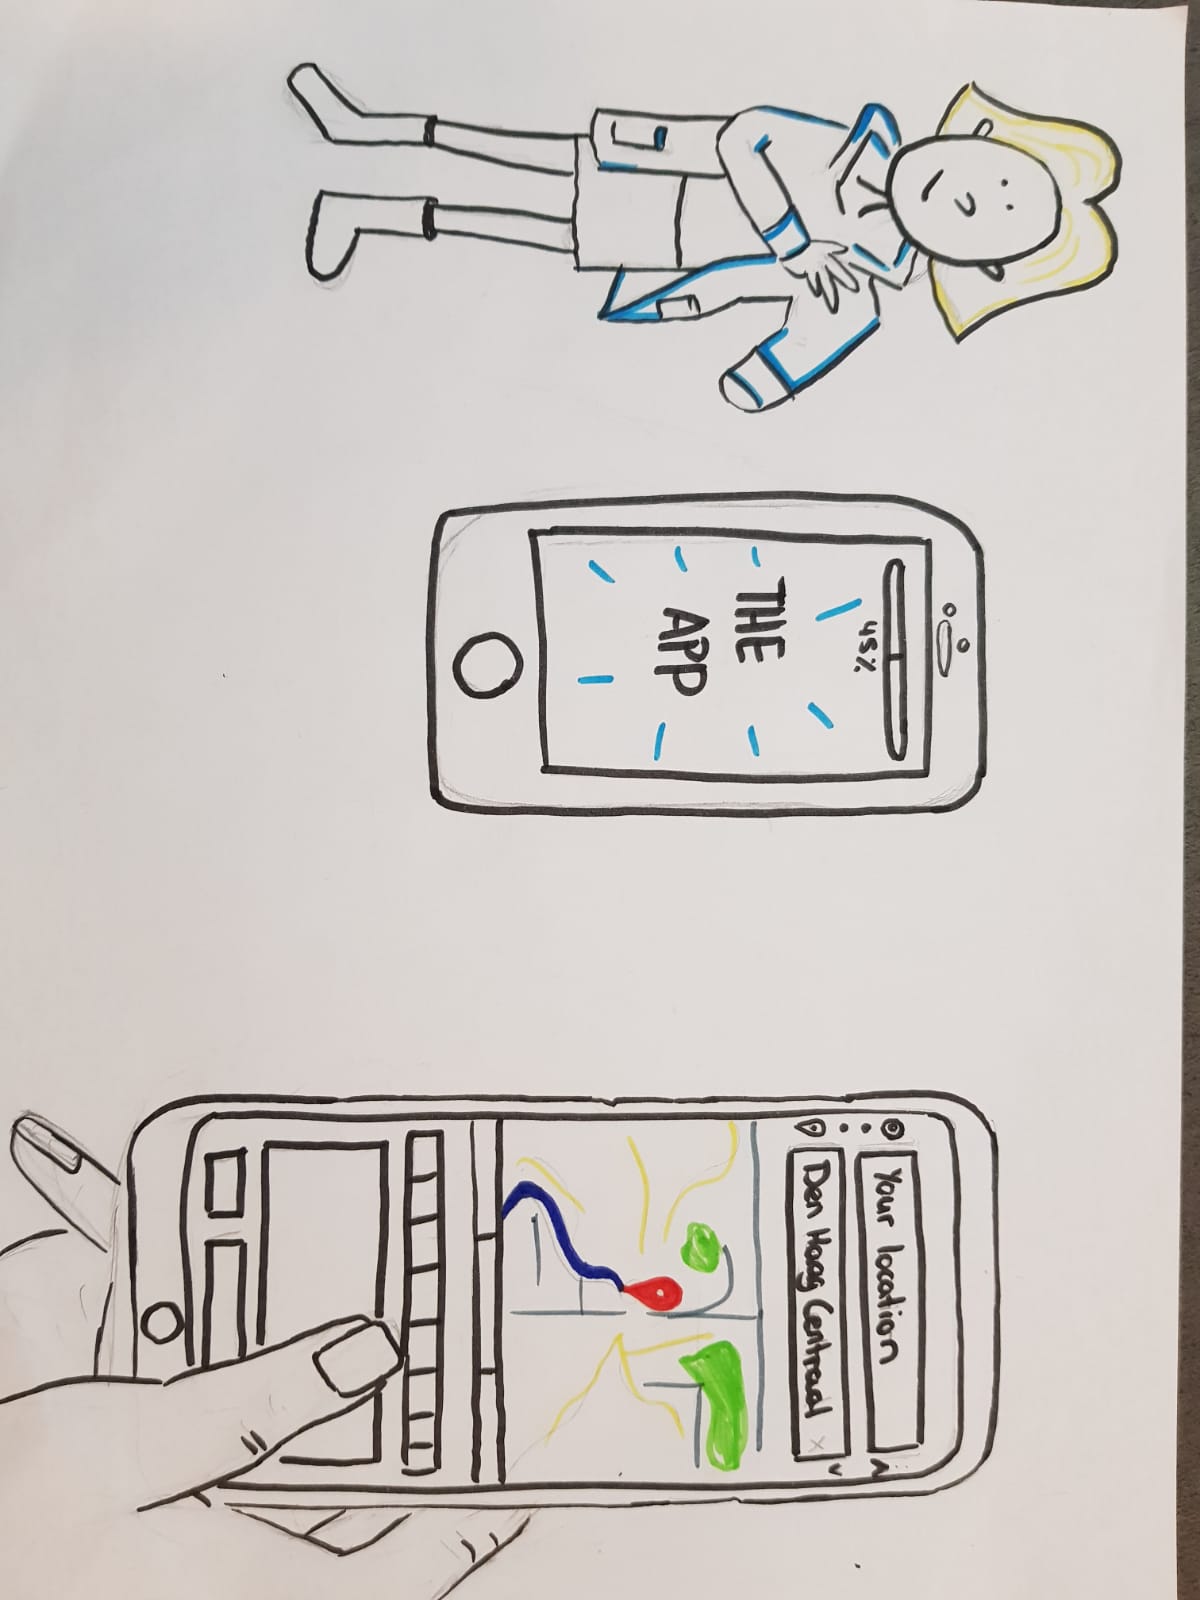 45%
THE
APP
Your location
Den Haag Centraal x